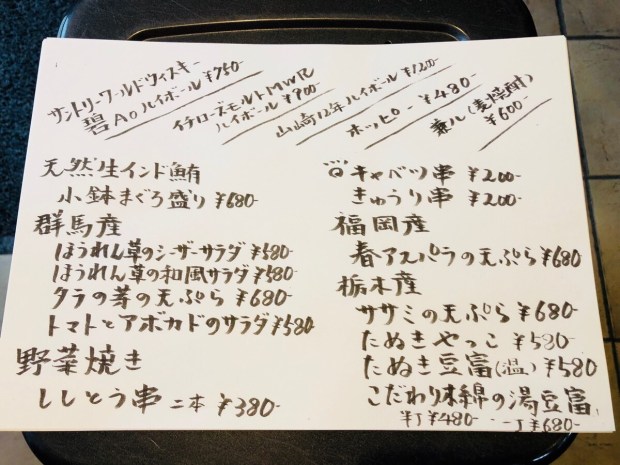 サントリーワールドウィスキー
碧Aoハイボール ¥750-
イチローズモルトMWR
ハイボール ¥900-
山崎12年ハイボール ¥1200-
ホッピー ¥480-
兼八(麦焼酎)
¥600-
天然生インド鮪
小鉢まぐろ盛り ¥680-
群馬産
ほうれん草のシーザーサラダ ¥580-
ほうれん草の和風サラダ ¥580-
タラの芽の天ぷら ¥680-
トマトとアボカドのサラダ ¥580-
野菜焼き
ししとう串 二本 ¥380-
キャベツ串 ¥200-
きゅうり串 ¥200-
福岡産
春アスパラの天ぷら ¥680
栃木産
ササミの天ぷら ¥680
たぬきやっこ ¥580-
たぬき豆富(温) ¥580
こだわり木綿の湯豆富
半丁¥480- 一丁¥680-